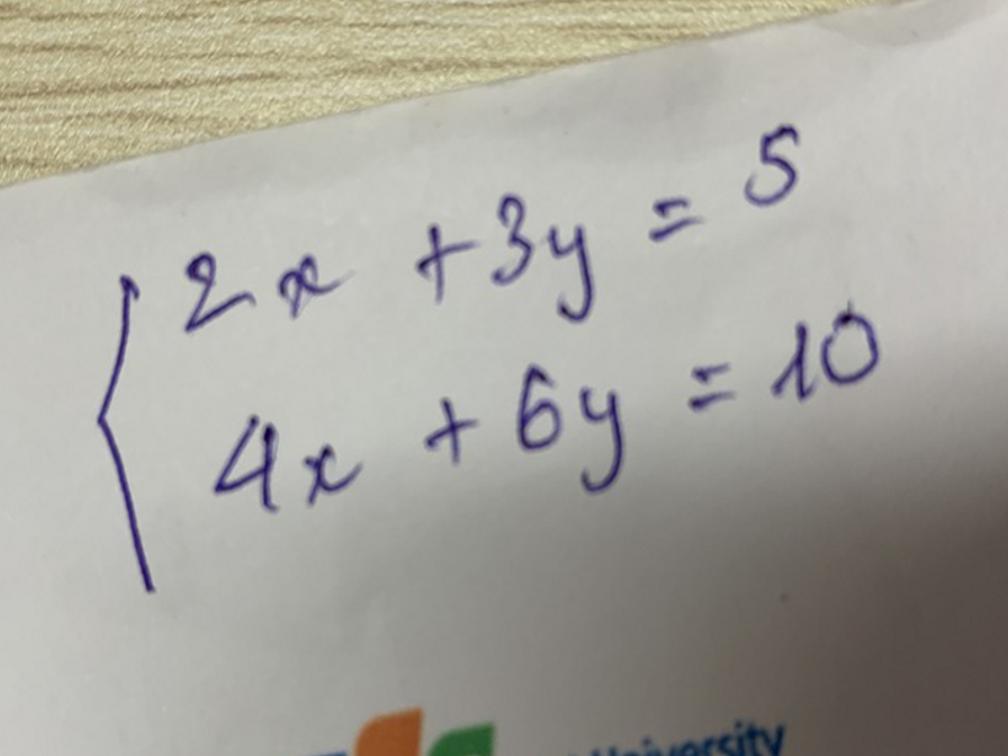 2x + 3y = 5
4x + 6y = 10
University